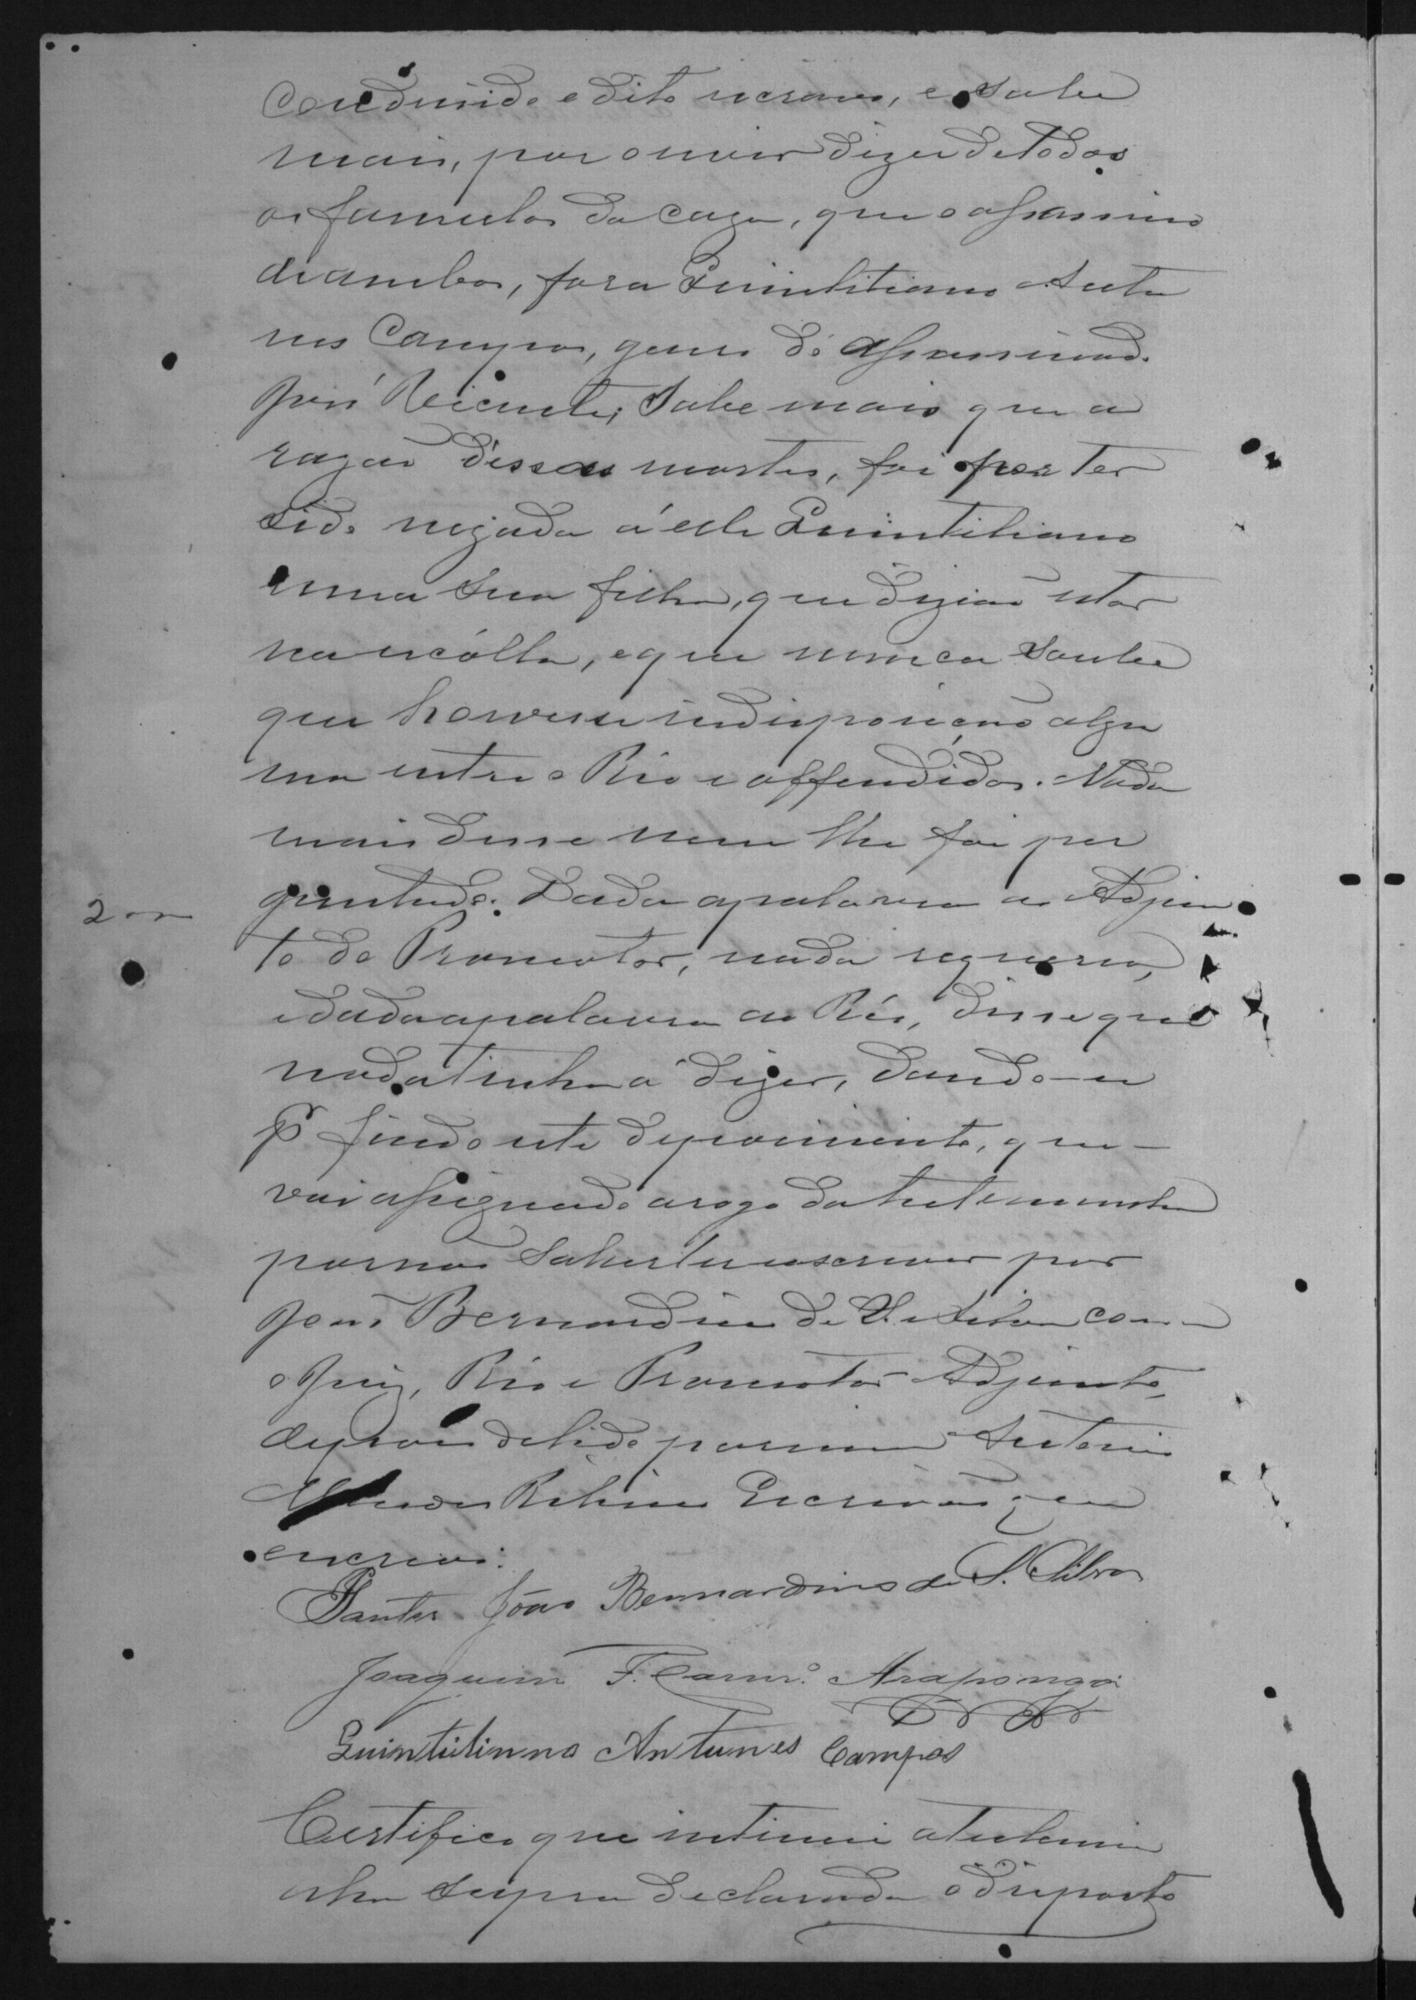 conduzido o dito escravo, e sabe
mais, por ouvir dizer de todos
os famulos da caza, que o assassino
de ambos, fora Quintiliano Antu
nes Campos, genro do assassinado
José Vicente; sabe mais que a
razão dessas mortes, foi por ter
sido negada á elle Quintiliano
uma sua filha, que dizião estar
na escólla, e que nunca soube
que houvesse indisposição algu
ma entre o Réo e offendidos. Nada
mais disse nem lhe foi per
guntado. Dada a palavra ao Adjun
2
to do Promotor, nada requereu,
e dada a palavra ao Réo, disse que
nada tinha á dizer, dando-se
pr findo este depoimento, que
vai assignado a rogo da testemunha
por não saber ler e escrever por
João Bernardino de S. e Silva com
o Juiz, Réo e Promotor Adjunto,
depois de lido por mim Antonio
Ribeiro Escrivão que
escrevi.
Santos João Bernardino de S. Silva
Joaquim F. Carnro. Araponga
Quintiliano Antunes Campos
Certifico que intimei a testemu
nha supra declarada o disposto